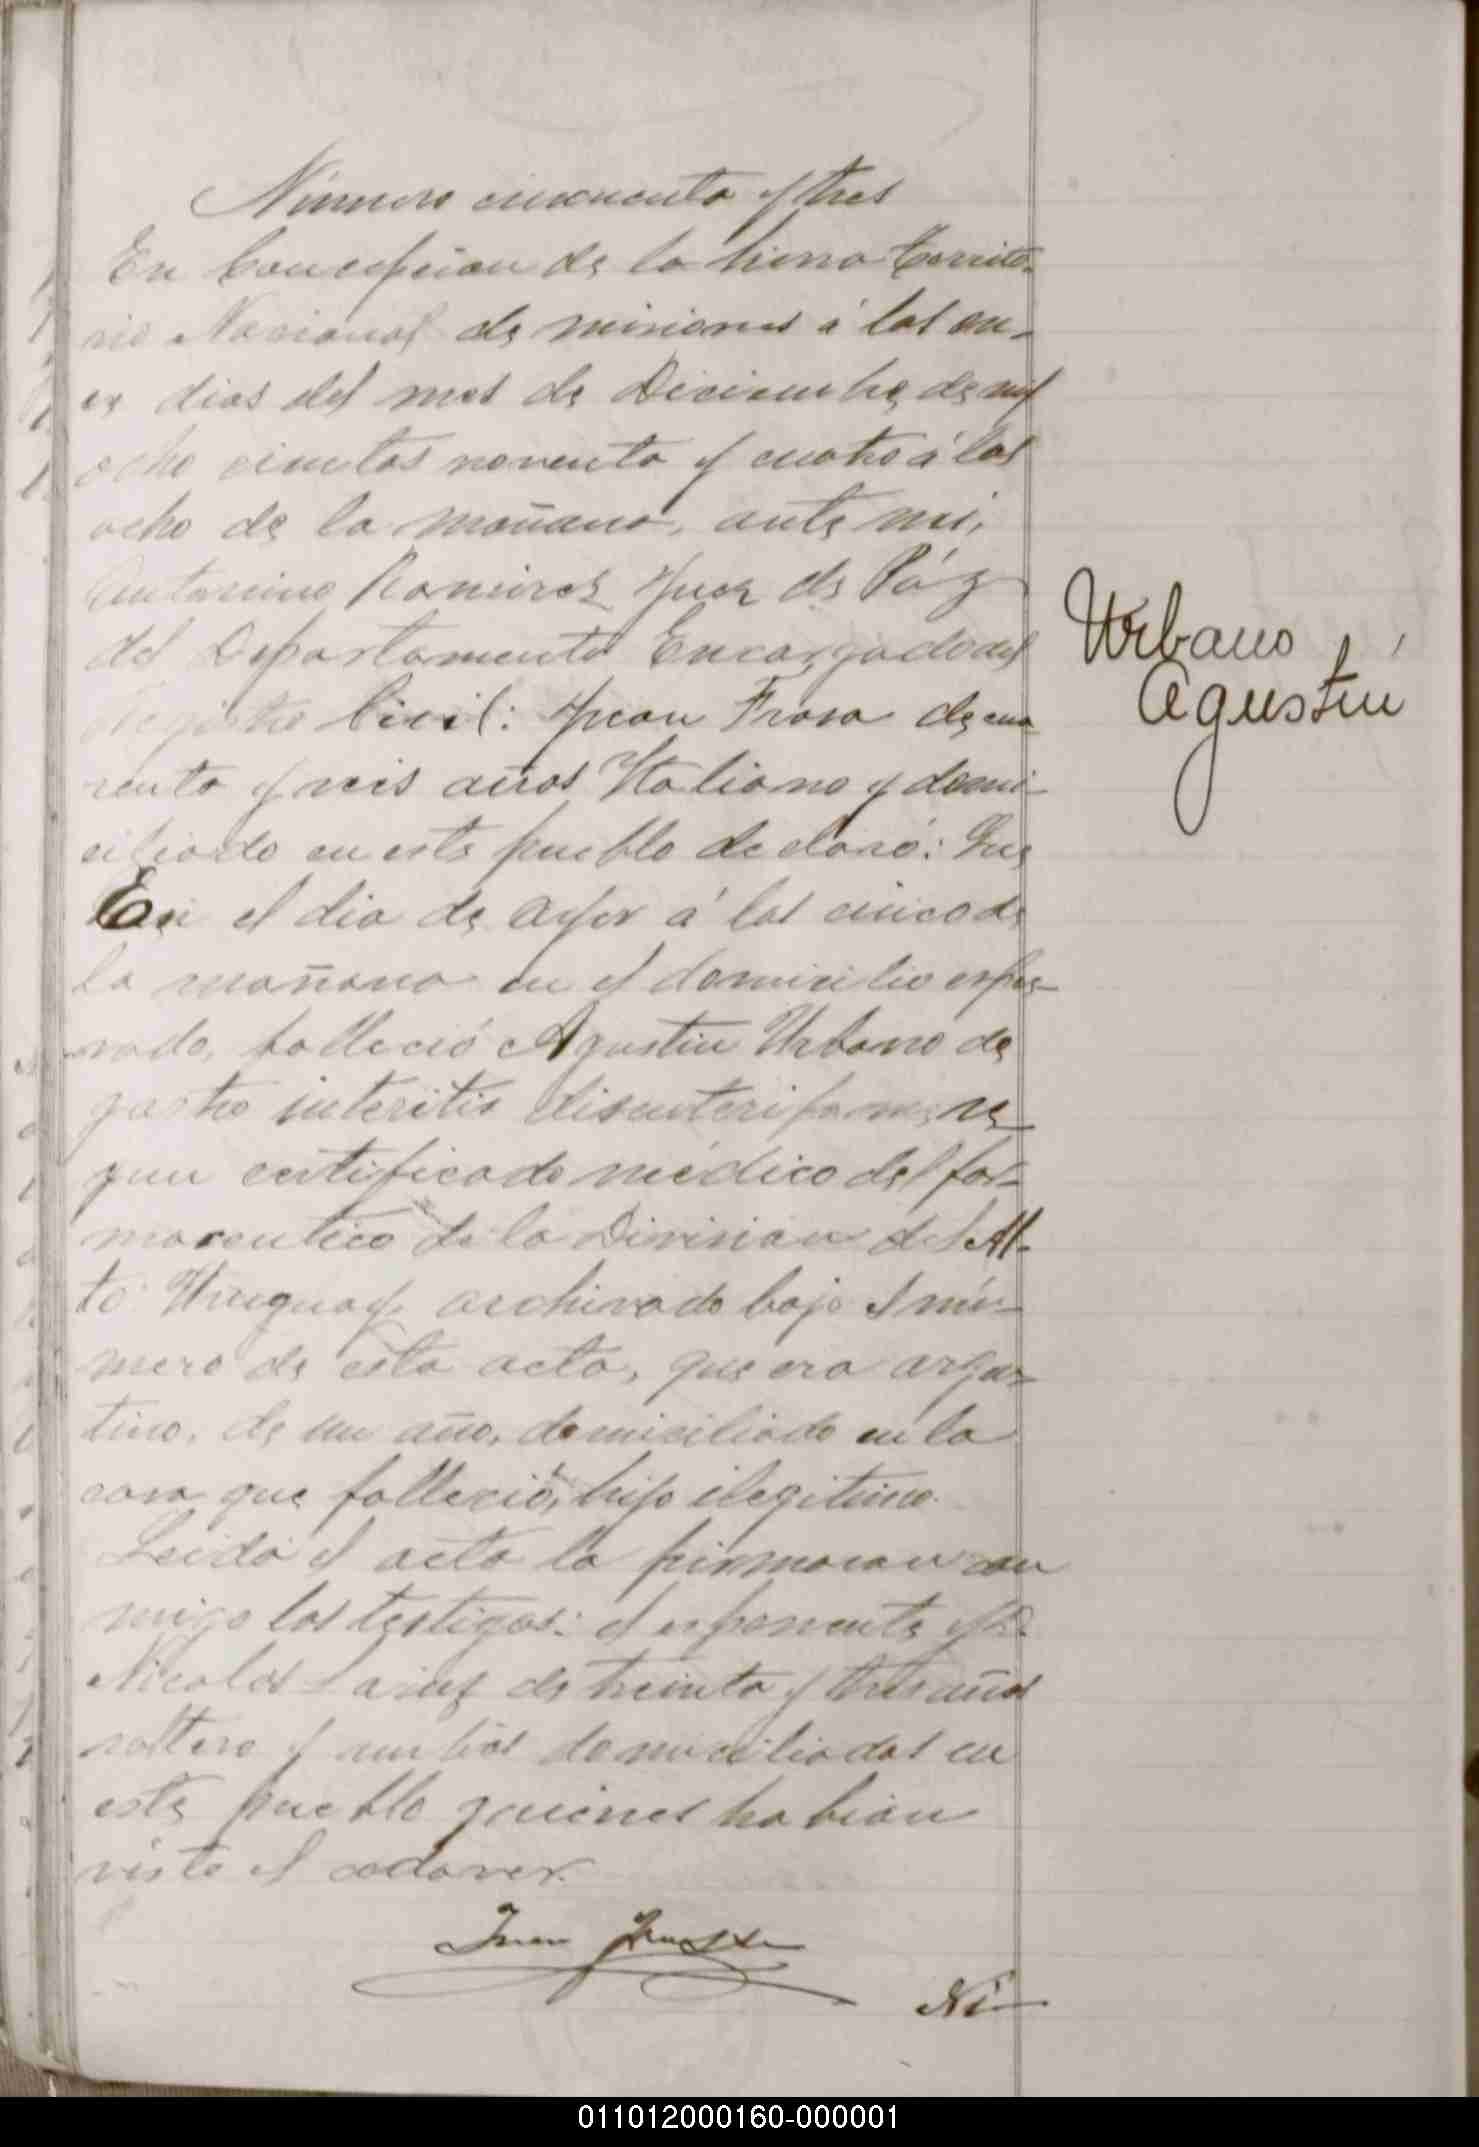 Número cincuenta y tres
En Concepcion de la Sierra Territo-
rio Nacional de Misiones á los on-
ce dias del mes de Diciembre de mil
ocho cientos noventa y cuatro á las
ocho de la mañana, ante mi,
Antonino Ramirez Juez de Páz
del Departamento Encargado del
Registro Civil: Juan Frasa de cua
renta y seis años Italiano y domi-
ciliado en este pueblo declaró: Que
En el dia de ayer á las cinco de
la mañana en el domicilio espre-
sado, falleció Agustin Urbano de
gastro interitis disenteriforme, se
gun certificado médico del far-
maceutico de la Division del Al-
to Uruguay archivado bajo el nú-
mero de esta acta, que era argen-
tino, de un año, domiciliado en la
casa que falleció, hijo ilegitimo.
Leida el acta la firmaron con
migo los testigos: el esponente y D.
Nicolas de treinta y tres años
soltero y ambos domiciliados en
este pueblo quienes habian
visto el cadaver.
Juan
Ni-
Urbano
Agustin
011012000160-000001